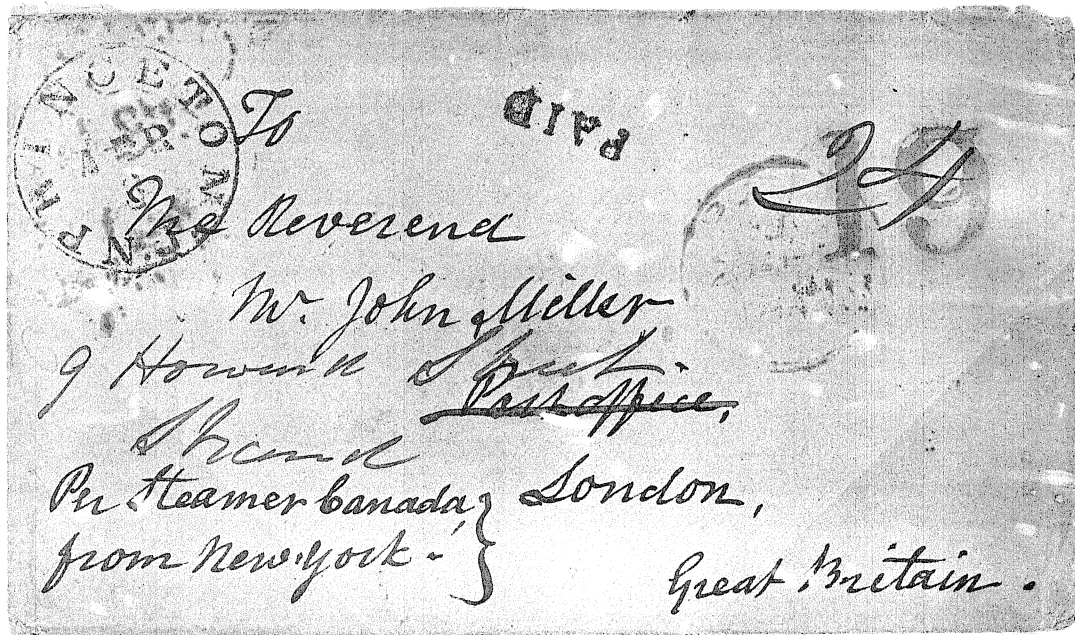 PRINCETON
SEP
PAID
24
19
To
The Reverend
Mr. John Miller
9 Howard Street
Post office,
Strand
Per Steamer Canada,
from New-York.
London,
Great Britain.